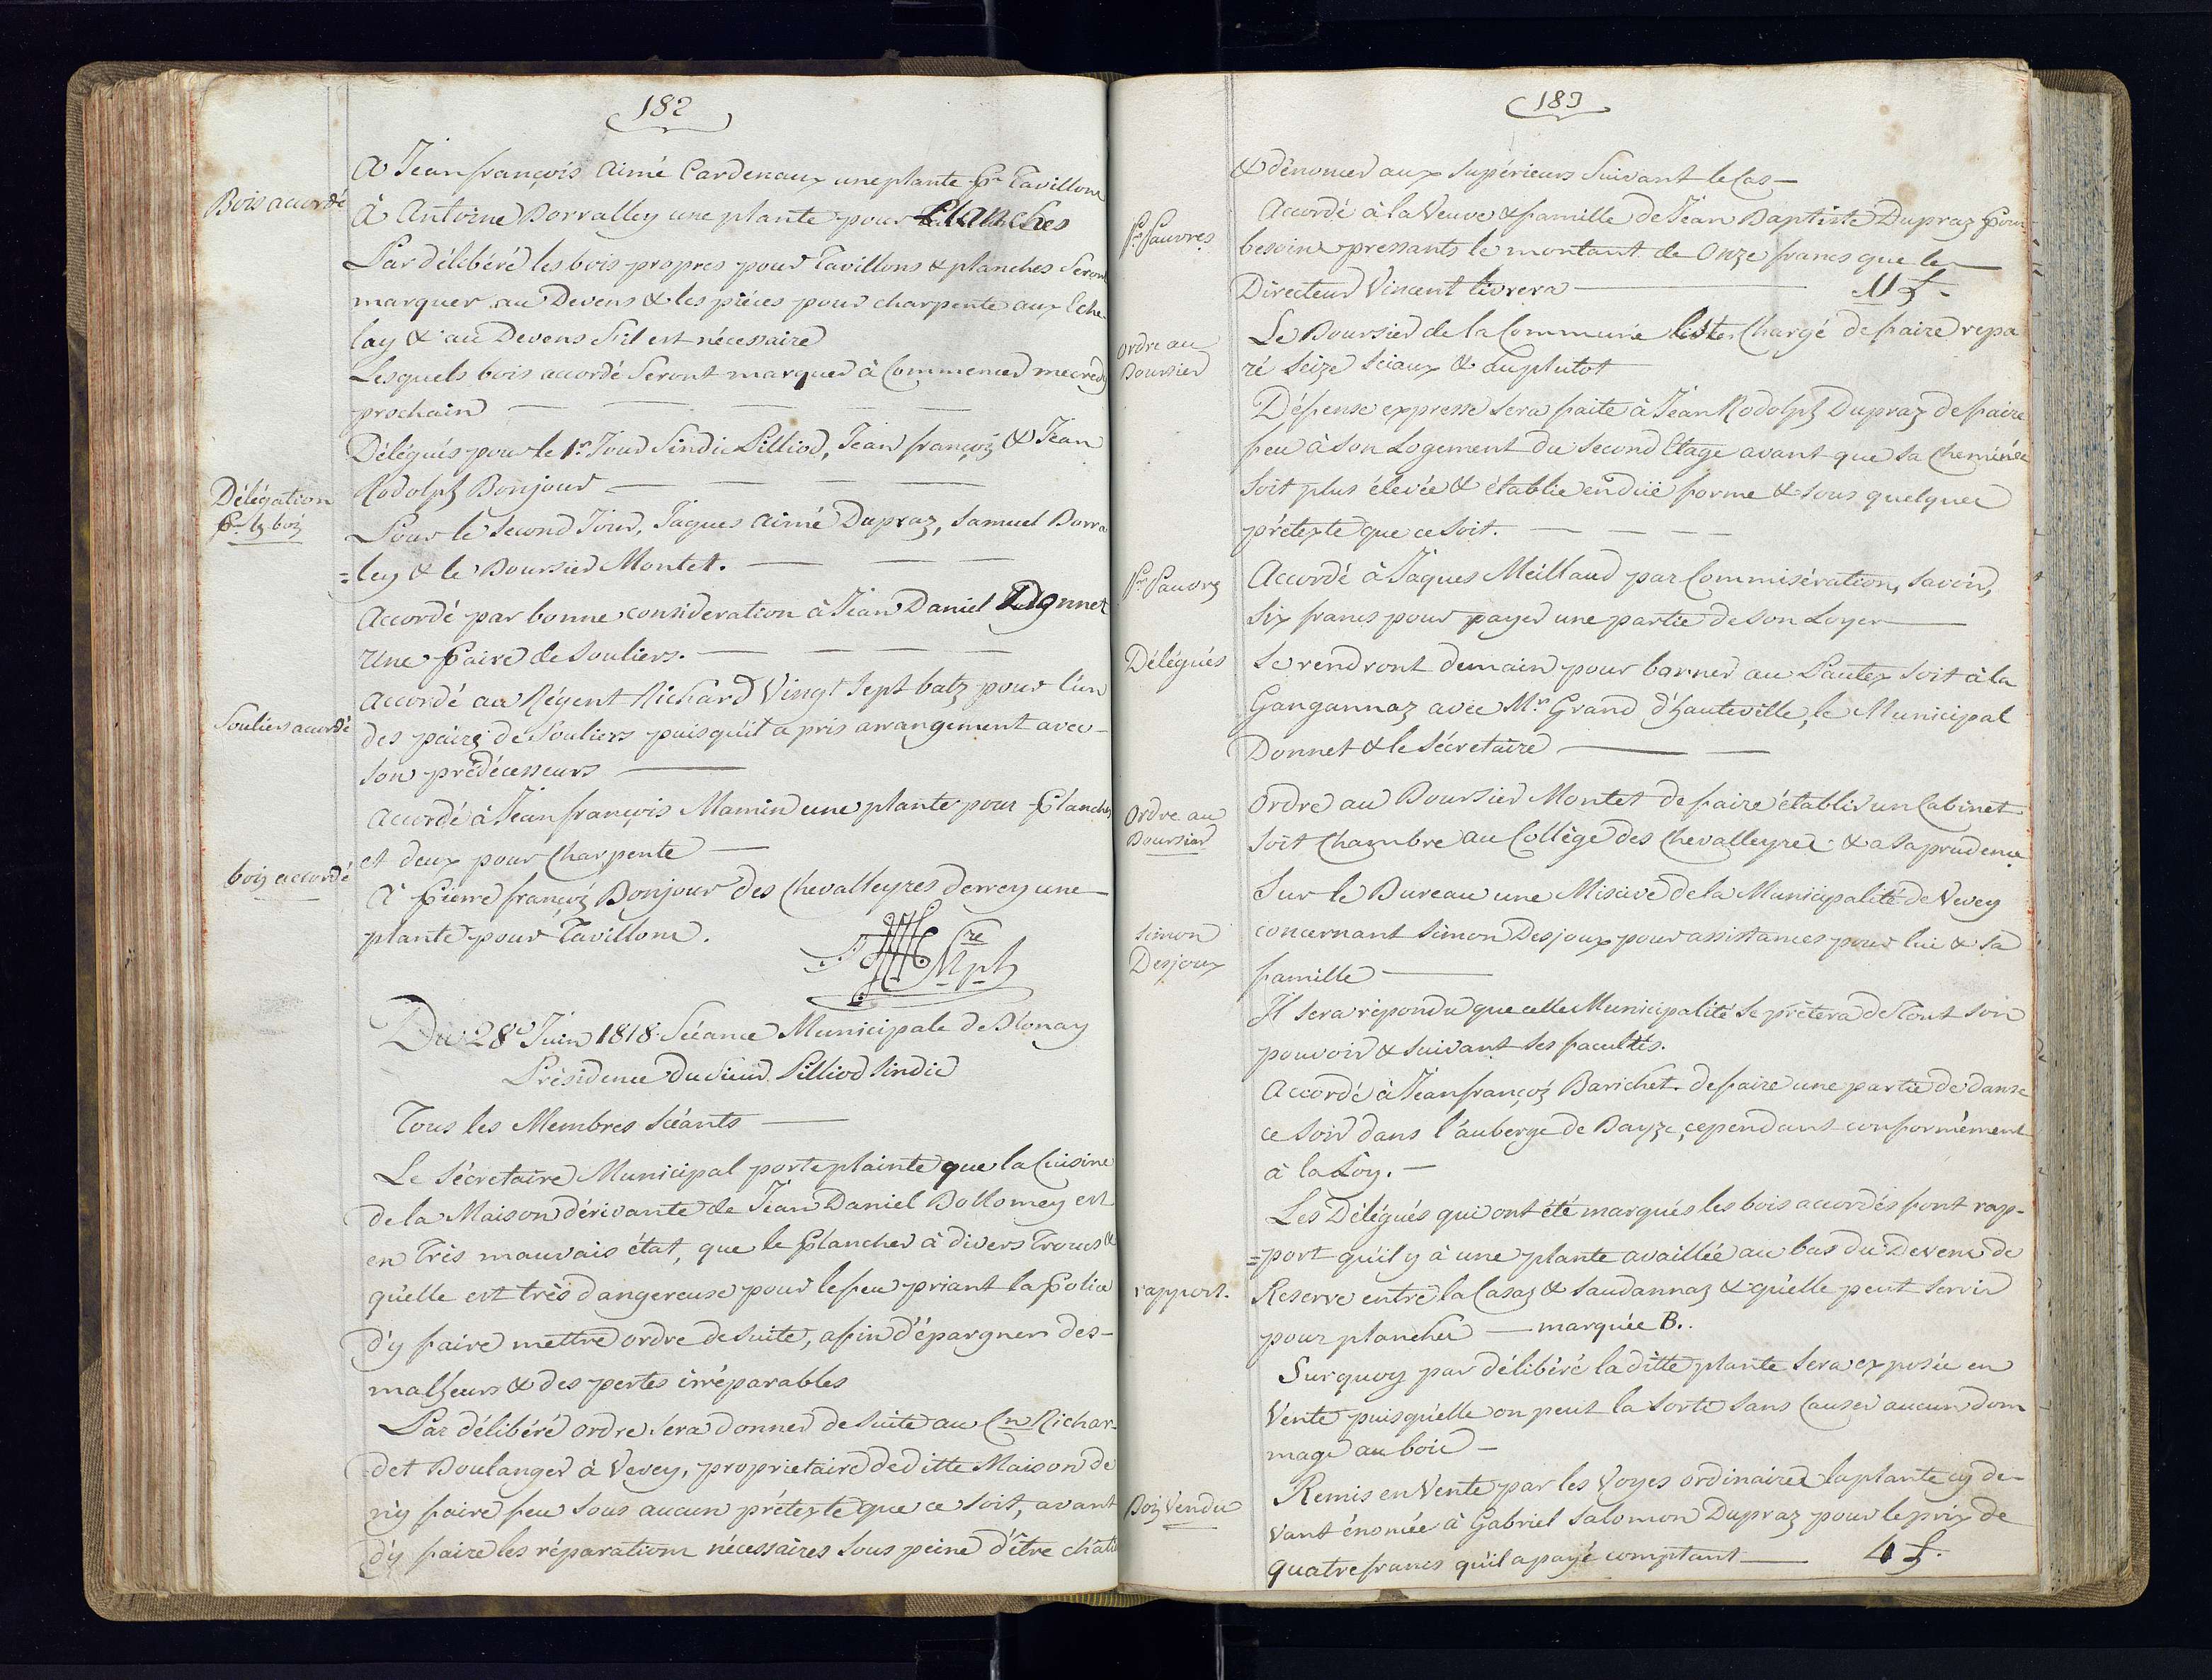 182
Bois accordé
A Jean françois Aimé Cardenaux une plante pr Tavillons
à Antoine Dorvalley une plante pour Planches
Par délibéré les bois propres pour Tavillons & planches Seront
marquer au Devens & les piéces pour charpente aux Eche
lay & au Devens S'il est nécessaire
Lesquels bois accordé Seront marquer à Commencer mecredy
prochain
Délégués pour le 1r Jour Sindic Pilliod, Jean françois & Jean
Délégation
pr ls bois
Rodolph Bonjour
Pour le Second Jour, Jaques Aimé Dupraz, Samuel Dorva
=ley & le Boursier Montet.
Accordé par bonne consideration à Jean Daniel Donnet
Une paire de Souliers.
Souliers accordé
Accordé au Régent Richard Vingt Sept batz pour l'un
des paires de Souliers puisqu'il a pris arrangement avec
Son prédécesseurs
Accordé à Jean françois Mamin une plante pour planches
et deux pour Charpente
bois accordé
A pierre françois Bonjour des Chevalleyres derrey une
plante pour Tavillons.
Sre
Mpl
Du 28e Juin 1818 Séance Municipale de Blonay
Présidence Du Sieur Pilliod Sindic
Tous les Membres Séants
Le Sécretaire Municipal porte plainte que la Cuisine
de la Maison dérivante de Jean Daniel Dollomey est
en Très mauvais état, que le plancher à divers Trous &
qu'elle est très dangereuse pour le feu priant la police
d'y faire mettre ordre de suite, afin d'épargner des
malheurs & des pertes irréparables
Par délibéré ordre Sera donner de Suite au Cn Richar-
det Boulanger à Vevey, proprietaire de ditte Maison de
n'y faire feu Sous aucun prétexte que ce Soit, avant
d'y faire les réparations nécessaires Sous peine d'être chatié
183
& dénoncer aux Supérieurs Suivant le Cas
pr Pauvres
Accordé à la Veuve & famille de Jean Baptiste Dupraz pour
besoins pressants le montant de Onze francs que le
Directeur Vincent livrera 11 f.
Ordre au
Boursier
Le Boursier de la Commune est Chargé de faire repa
ré Seize Sciaux & au plutot
Défense expresse Sera faite à Jean Rodolph Dupraz de faire
feu à Son Logement du Second Etage avant que Sa Cheminée
Soit plus élevée & établie en duë forme & sous quelques
prétexte que ce Soit.
pr Pauvres
Accordé à Jaques Meillaud par Commisération, Savoir,
Six francs pour payer une partie de Son Loyer
Délégués
Se rendront demain pour borner au Pautex Soit à la
Gangannaz avec Mr Grand d'hauteville, le Municipal
Donnet & le Sécretaire
Ordre au
Boursier
Ordre au Boursier Montet de faire établir un Cabinet
Soit Chambre au Collège des Chevalleyres & a Sa prudence
Sur le Bureau une Missive de la Municipalité de Vevey
Simon
Desjoux
concernant Simon Desjoux pour assistances pour lui & Sa
famille
Il Sera répondu que cette Municipalité Se prêtera de Tout Son
pouvoir & Suivant Ses facultés.
Accordé à Jean françois Barichet de faire une partie de danse
ce Soir dans l'auberge de Bayze, cependant conformément
à la Loy.
Les Délégués qui ont été marqués les bois accordés font rap-
=port qu'il y à une plante availlée au bas du Devens de
rapport.
Reserve entre la Casaz & Saudannaz & qu'elle peut Servir
pour plancher marquée B.
Surquoy par délibéré la ditte plante Sera exposée en
Vente puisqu'elle on peut la Sorte Sans Causer aucun dom
mage au bois
Bois Vendu
Remis en Vente par les Voyes ordinaires la plante cy de
vant énomée à Gabriel Salomon Dupraz pour le prix de
quatre francs qu'il a payé comptant 4 f.